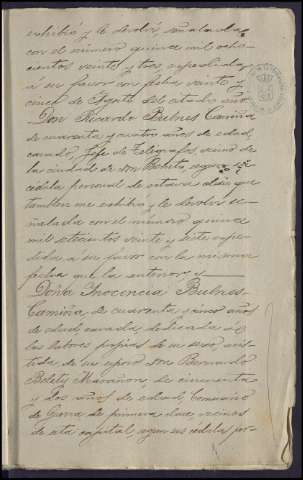 exhibió y le devolví, señalada
con el número quince mil ocho-
cientos veinte y tres expedida
á su favor con fecha veinte y
cinco de Agosto del citado año
Don Ricardo Bulnes Camiña
de cuarenta y cuatro años de edad,
casado, Jefe de Telégrafos, vecino de
la ciudad de Don Benito, segun su
cédula personal de octava clase que
tambien me exhibe y le devolví se-
ñalada con el número quince
mil ochocientos veinte y siete expe-
dida á su favor con la misma
fecha que la anterior y
Doña Inocencia Bulnes
Camiña de cuarenta y cinco años
de edad, casada, dedicada á
las labores propias de su sexo asis-
tida de su esposo Don Bernardo
Marañon, de cincuenta
y dos años de edad, Comisario
de Guerra de primera clase, vecinos
de esta capital, segun sus cédulas per-